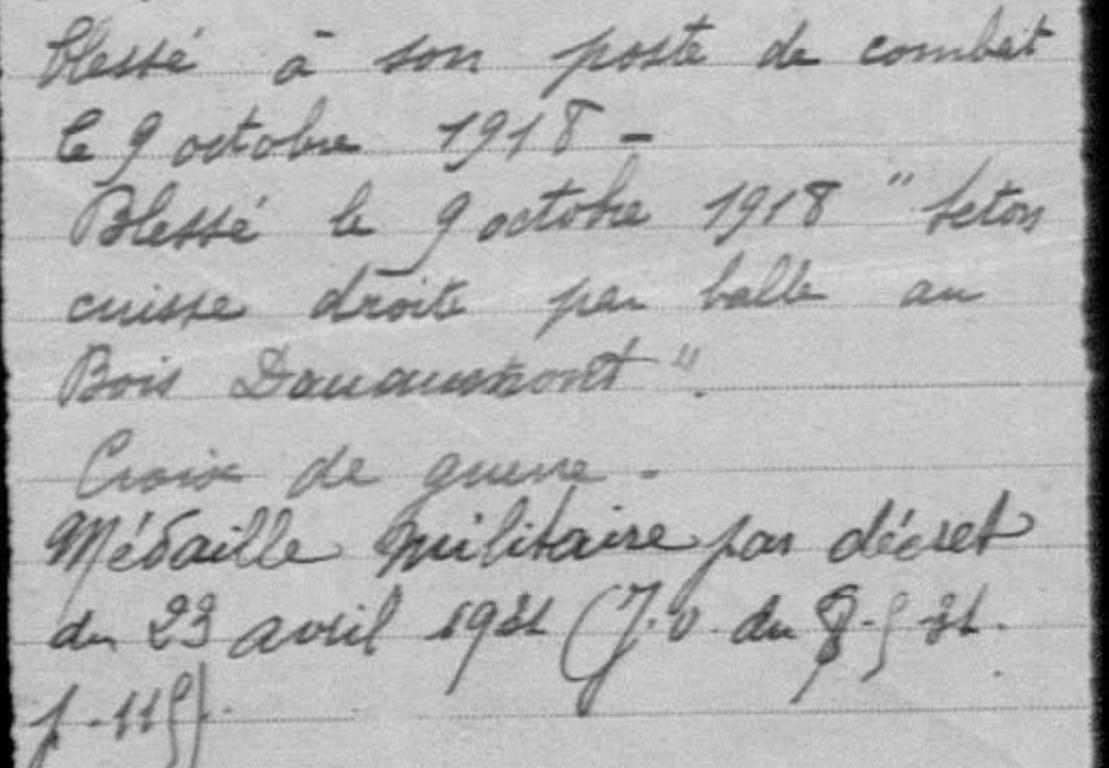 blessé à son poste de combat
le 9 octobre 1918 -
Blessé le 9 octobre 1918 " seton
cuisse droite par balle au
Bois Douaumont ".
Croix de guerre -
Médaille militaire par décret
du 23 avril 1931 (J. O. du
p. 115).